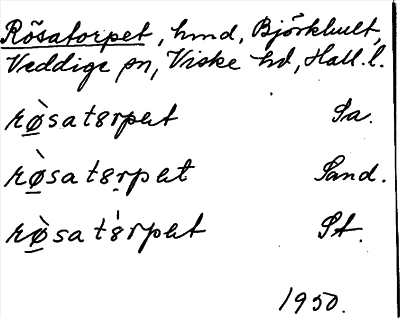 Rösatorpet, hmd, Björkhult,
Veddige sn, Viske hd, Hall. l.
rø̀satɵrpet Sa.
rø̀satɵrpet Sand.
rø̀satɵ́rpet St.
1950.